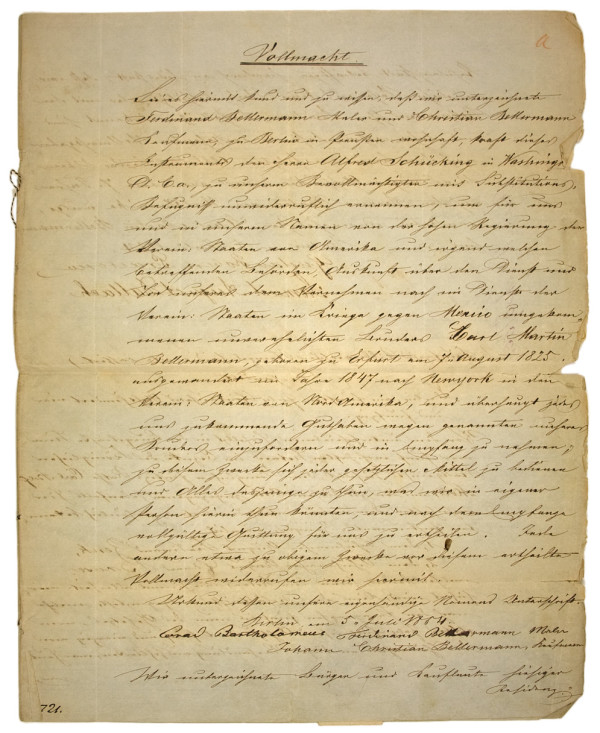 a
Vollmacht.
Sei es hiermit kund und zu wissen, daß wir unterzeichnete
Ferdinand Bellermann Maler und Christian Bellermann
Kaufmann, zu Berlin in Preußen wohnhaft, kraft dieses
Instruments den Herrn Alfred Schücking in Washingt.
zu unserm Bevollmächtigten mit Substitutions-
Befugniß unwiderruflich ernennen, um für uns
und in unserem Namen von der hohen Regierung der
Verein: Staaten von Amerika und irgend welchen
betreffenden Behörden, Auskunft über den Dienst und
Tod unseres dem Vernehmen nach im Dienste der
Verein: Staaten im Kriege gegen Mexico umgekom-
menen unverehelichten Bruders Carl Martin
Bellermann, geboren zu Erfurt am 7. August 1825.
ausgewandert im Jahre 1847 nach Newyork in den
Verein: Staaten von Nord Amerika, und überhaupt jedes
uns zukommende Guthaben wegen genannten unseres
Bruders einzufordern und in Empfang zu nehmen;
zu diesem Zwecke sich jeder gesetzlichen Mittel zu bedienen
und Alles dasjenige zu thun, was wir in eigener
Person hierin thun könnten und nach dem Empfange
vollgültige Quittung für uns zu ertheilen. Jede
andere etwa zu obigem Zwecke vor diesem ertheilte
Vollmacht widerrufen wir hiermit.
Urkund dessen unsere eigenhändige Namens Unterschrift.
Berlin am 5. Juli 1854.
Conrad Bartholomeus Ferdinand Bellermann Maler
Johann Christian Bellermann, Kaufmann
Wir unterzeichnete Bürger und Kaufleute hiesiger
Residenz
721.